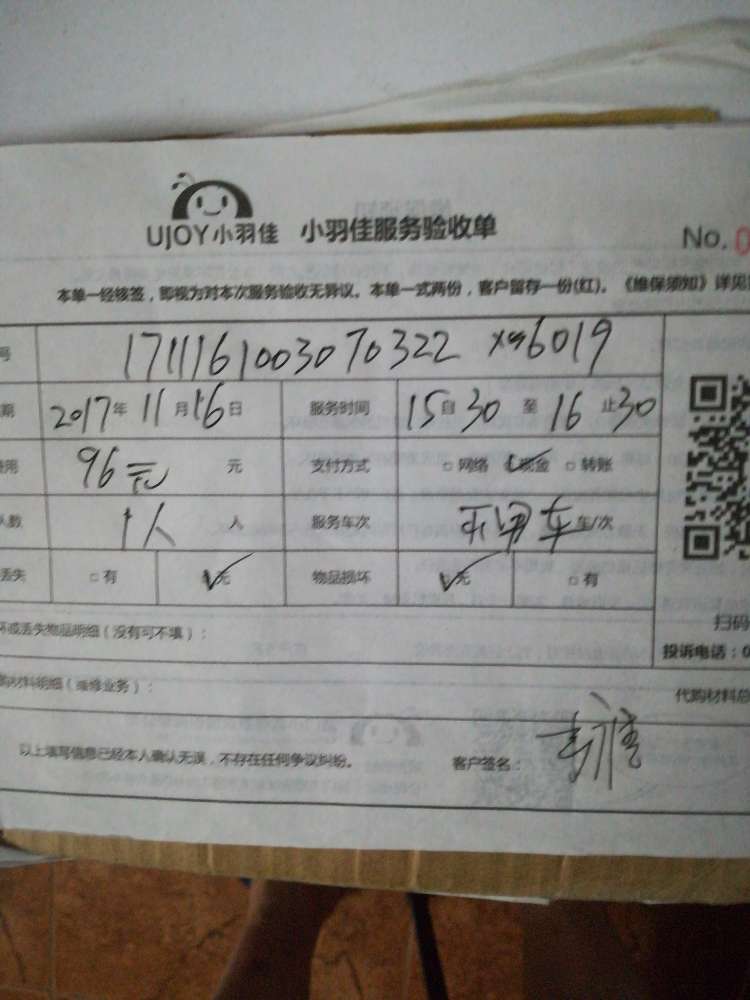 UJOY小羽佳 小羽佳服务验收单
No. 0
本单一经核签，即视为对本次服务验收无异议。本单一式两份，客户留存一份(红)。《维保须知》详见
号 1711161003070322 6019
期 2017年11月16日 服务时间 15自30至16止30
费用 96元 元 支付方式 □网络 ✓现金 □转账
人数 1人 人 服务车次 不用车 车/次
丢失 □有 ✓无 物品损坏 ✓无 □有
坏或丢失物品明细（没有可不填）：
扫码
投诉电话：0
购材料明细（维修业务）：
代购材料总
以上填写信息已经本人确认无误，不存在任何争议纠纷。 客户签名：